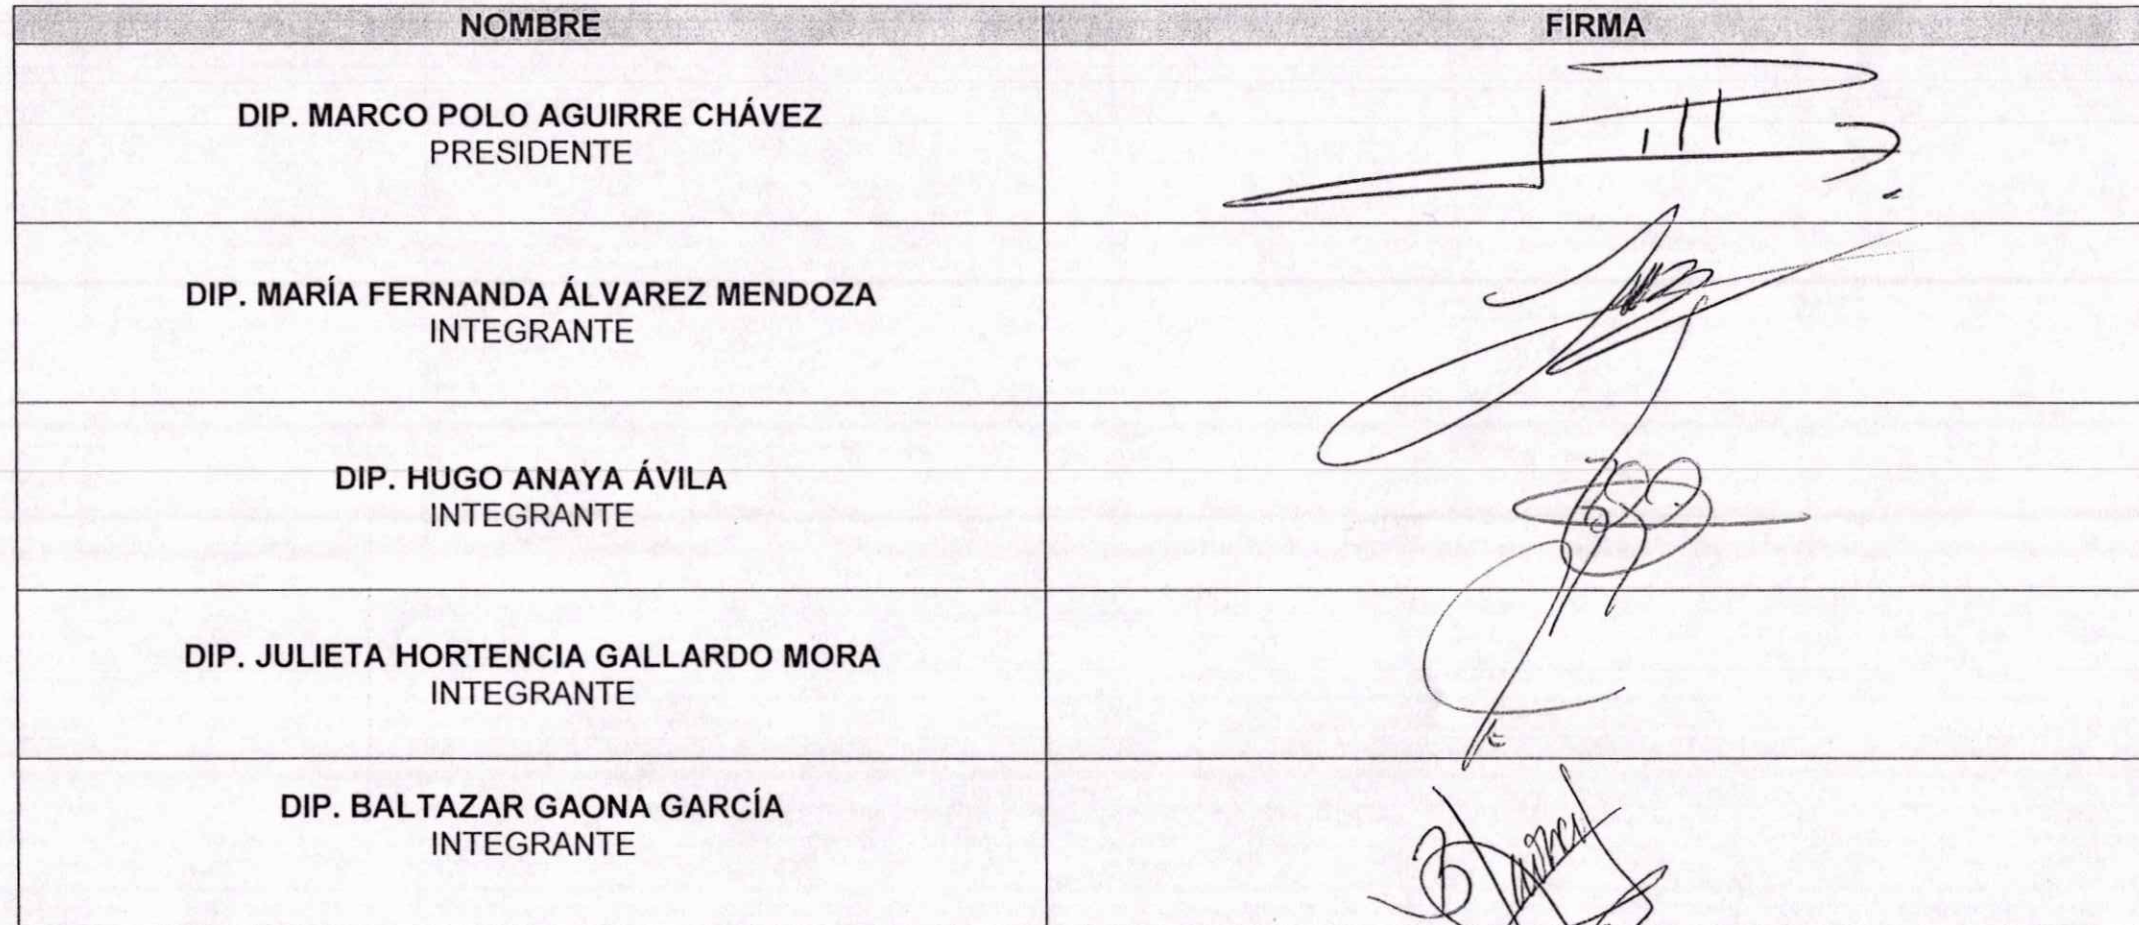 NOMBRE
FIRMA
DIP. MARCO POLO AGUIRRE CHÁVEZ
PRESIDENTE
DIP. MARÍA FERNANDA ÁLVAREZ MENDOZA
INTEGRANTE
DIP. HUGO ANAYA ÁVILA
INTEGRANTE
DIP. JULIETA HORTENCIA GALLARDO MORA
INTEGRANTE
DIP. BALTAZAR GAONA GARCÍA
INTEGRANTE